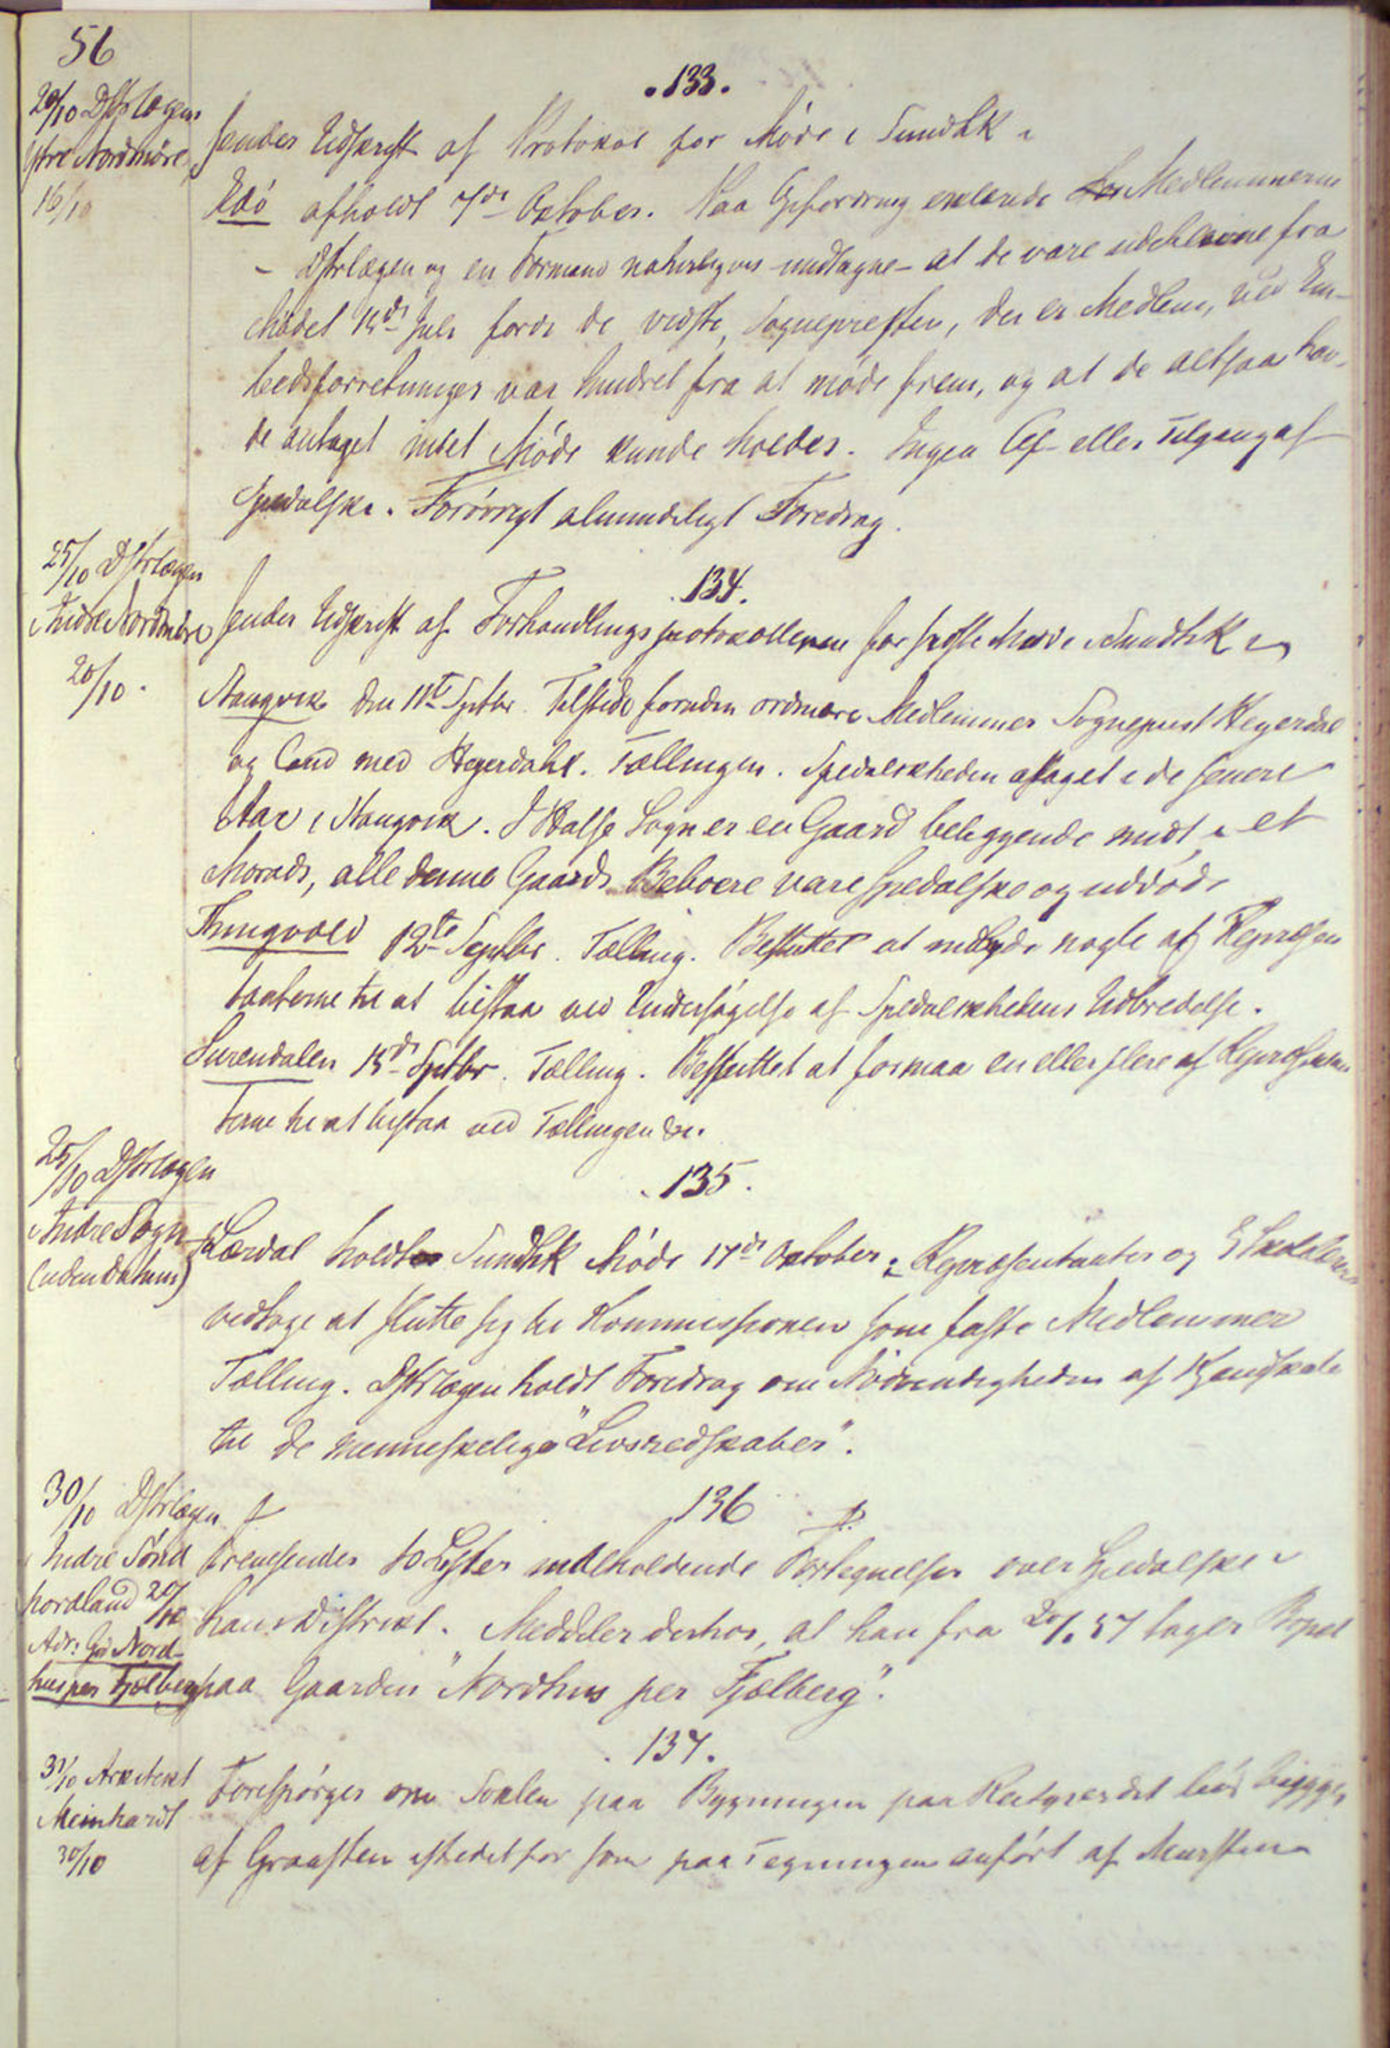 56
.133.
20/10 Dstrlægen
Ytre Nordmøre
16/10
sender Udskrift af Protokol for Møde i Sundhk i
Edø afholdt 7de October. Paa Opfordring erklærede Medlemmerne
- Dstrlægen og en Formand naturligvis undtagne - at de vare udeblevne fra
Mødet 15de Juli fordi de vidste, Sognepresten, der er Medlem, ved Em-
bedsforretninger var hindret fra at møde frem, og at de altsaa hav-
de antaget intet Møde kunde holdes. Ingen Af- eller Tilgang af
Spedalske. Forøvrigt almindeligt Foredrag.
.134.
25/10 Dstrlægen
Indre Nordmøre
20/10.
sender Udskrift af Forhandlingsprotokollerne for sidste Møde i Sundhk i
Stangvik den 11te Septbr. Tilstede foruden ordinære Medlemmer Sogneprest Heyerdal
og Cand med Heyerdahl. Tællingen. Spedalskheden aftaget i de senere
Aar i Stangvik. I Halse Sogn er en Gaard beliggende midt i et
Morads, alle denne Gaards Beboere vare spedalske og uddøde
Thingvold 12te Septbr. Tælling. Besluttet at indbyde nogle af Repræsen
tanterne til at bistaa ved Undersøgelse af Spedalskhedens Udbredelse.
Surendalen 15de Septbr. Tælling. Besluttet at formaa en eller flere af Repræsentan
terne til at bistaa ved Tællingen &c.
.135.
25/10 Dstrlægen
Indre Sogn
(uden Datum)
I Lærdal holdt Sundhk Møde 17de October; Repræsentanter og
vedtoge at slutte sig til Kommissionen som faste Medlemmer
Tælling. Dstrlægen holdt Foredrag om Nødvendigheden af Kjendskab
til de menneskelige "Livsredskaber".
136
30/10 Dstrlægen
Indre Sønd
hordland 20/10
Adr: Grd Nord-
huus per Fjelberg
Fremsender to Lister indeholdende Fortegnelser over Spedalske i
hans Distrikt. Meddeler derhos, at han fra 20/. 57 tager Bopæl
paa Gaarden "Nordhus per Fjælberg".
.137.
31/10 Arkitekt
Meinhardt
30/10
Forespørger om Soklen paa Bygningen paa Reitgjerdet bør bygges
af Graasten istedetfor som paa Tegningen anført af Mursten